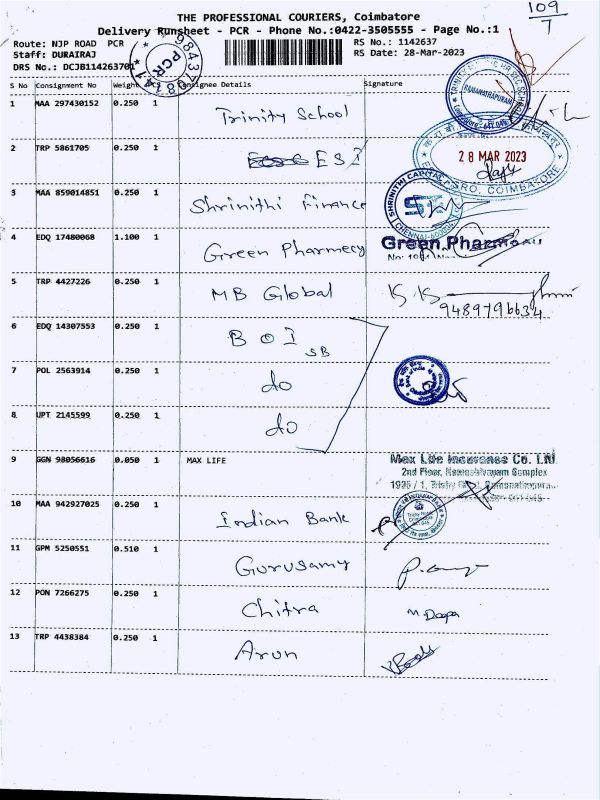 109
T
THE PROFESSIONAL COURIERS, Coimbatore
Delivery Runsheet - PCR - Phone No.:0422-3505555 - Page No.:1
Route: NJP ROAD PCR
RS No.: 1142637
Staff: DURAIRAJ
RS Date: 28-Mar-2023
DRS No.: DCJB114263701
PCR
S No Consignment No Weight Consignee Details Signature
1 MAA 297430152 0.250 1 Trinity School
RAMANATHAPURAM
2 TRP 5861705 0.250 1 ESI
28 MAR 2023
3 MAA 859014851 0.250 1 Shrinithi Finance
SHRINITHI CAPITAL
4 EDQ 17480068 1.100 1 Green Pharmecy
Green Pharma
5 TRP 4427226 0.250 1 MB Global
9489796634
6 EDQ 14307553 0.250 1 BOI SB
7 POL 2563914 0.250 1 do
8 UPT 2145599 0.250 1 do
9 GGN 98056616 0.050 1 MAX LIFE
Max Life Insurance Co. Ltd
2nd Floor, Namashivayam Complex
10 MAA 942927025 0.250 1 Indian Bank
11 GPM 5250551 0.510 1 Gurusamy
12 PON 7266275 0.250 1 Chitra
13 TRP 4438384 0.250 1 Arun